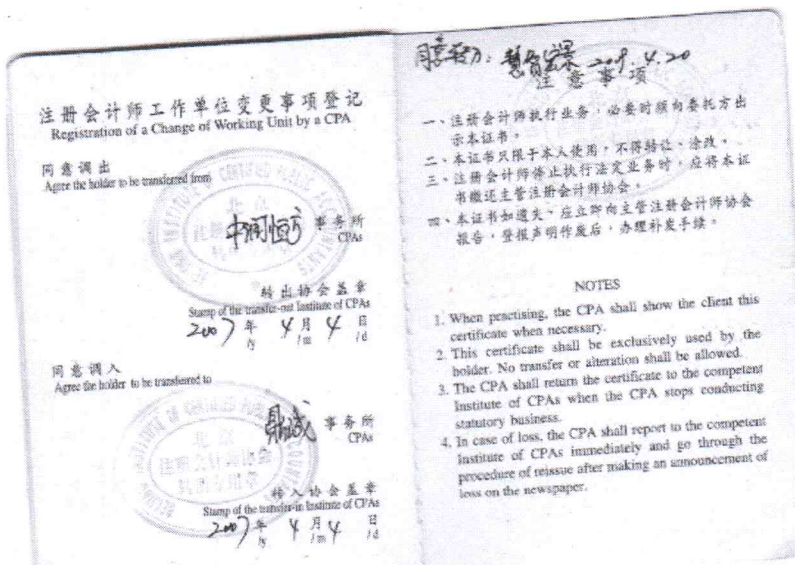 注册会计师工作单位变更事项登记
Registration of a Change of Working Unit by a CPA
同意调出
Agree the holder to be transferred from
中润恒方 事务所
CPAs
转出协会盖章
Stamp of the transfer-out Institute of CPAs
2007 年 4 月 4 日
/y /m /d
同意调入
Agree the holder to be transferred to
鼎诚 事务所
CPAs
转入协会盖章
Stamp of the transfer-in Institute of CPAs
2007 年 4 月 4 日
/y /m /d
2009.4.20
注意事项
一、注册会计师执行业务,必要时须向委托方出
示本证书。
二、本证书只限于本人使用,不得转让、涂改。
三、注册会计师停止执行法定业务时,应将本证
书缴还主管注册会计师协会。
四、本证书如遗失,应立即向主管注册会计师协会
报告,登报声明作废后,办理补发手续。
NOTES
1. When practising, the CPA shall show the client this
certificate when necessary.
2. This certificate shall be exclusively used by the
holder. No transfer or alteration shall be allowed.
3. The CPA shall return the certificate to the competent
Institute of CPAs when the CPA stops conducting
statutory business.
4. In case of loss, the CPA shall report to the competent
Institute of CPAs immediately and go through the
procedure of reissue after making an announcement of
loss on the newspaper.